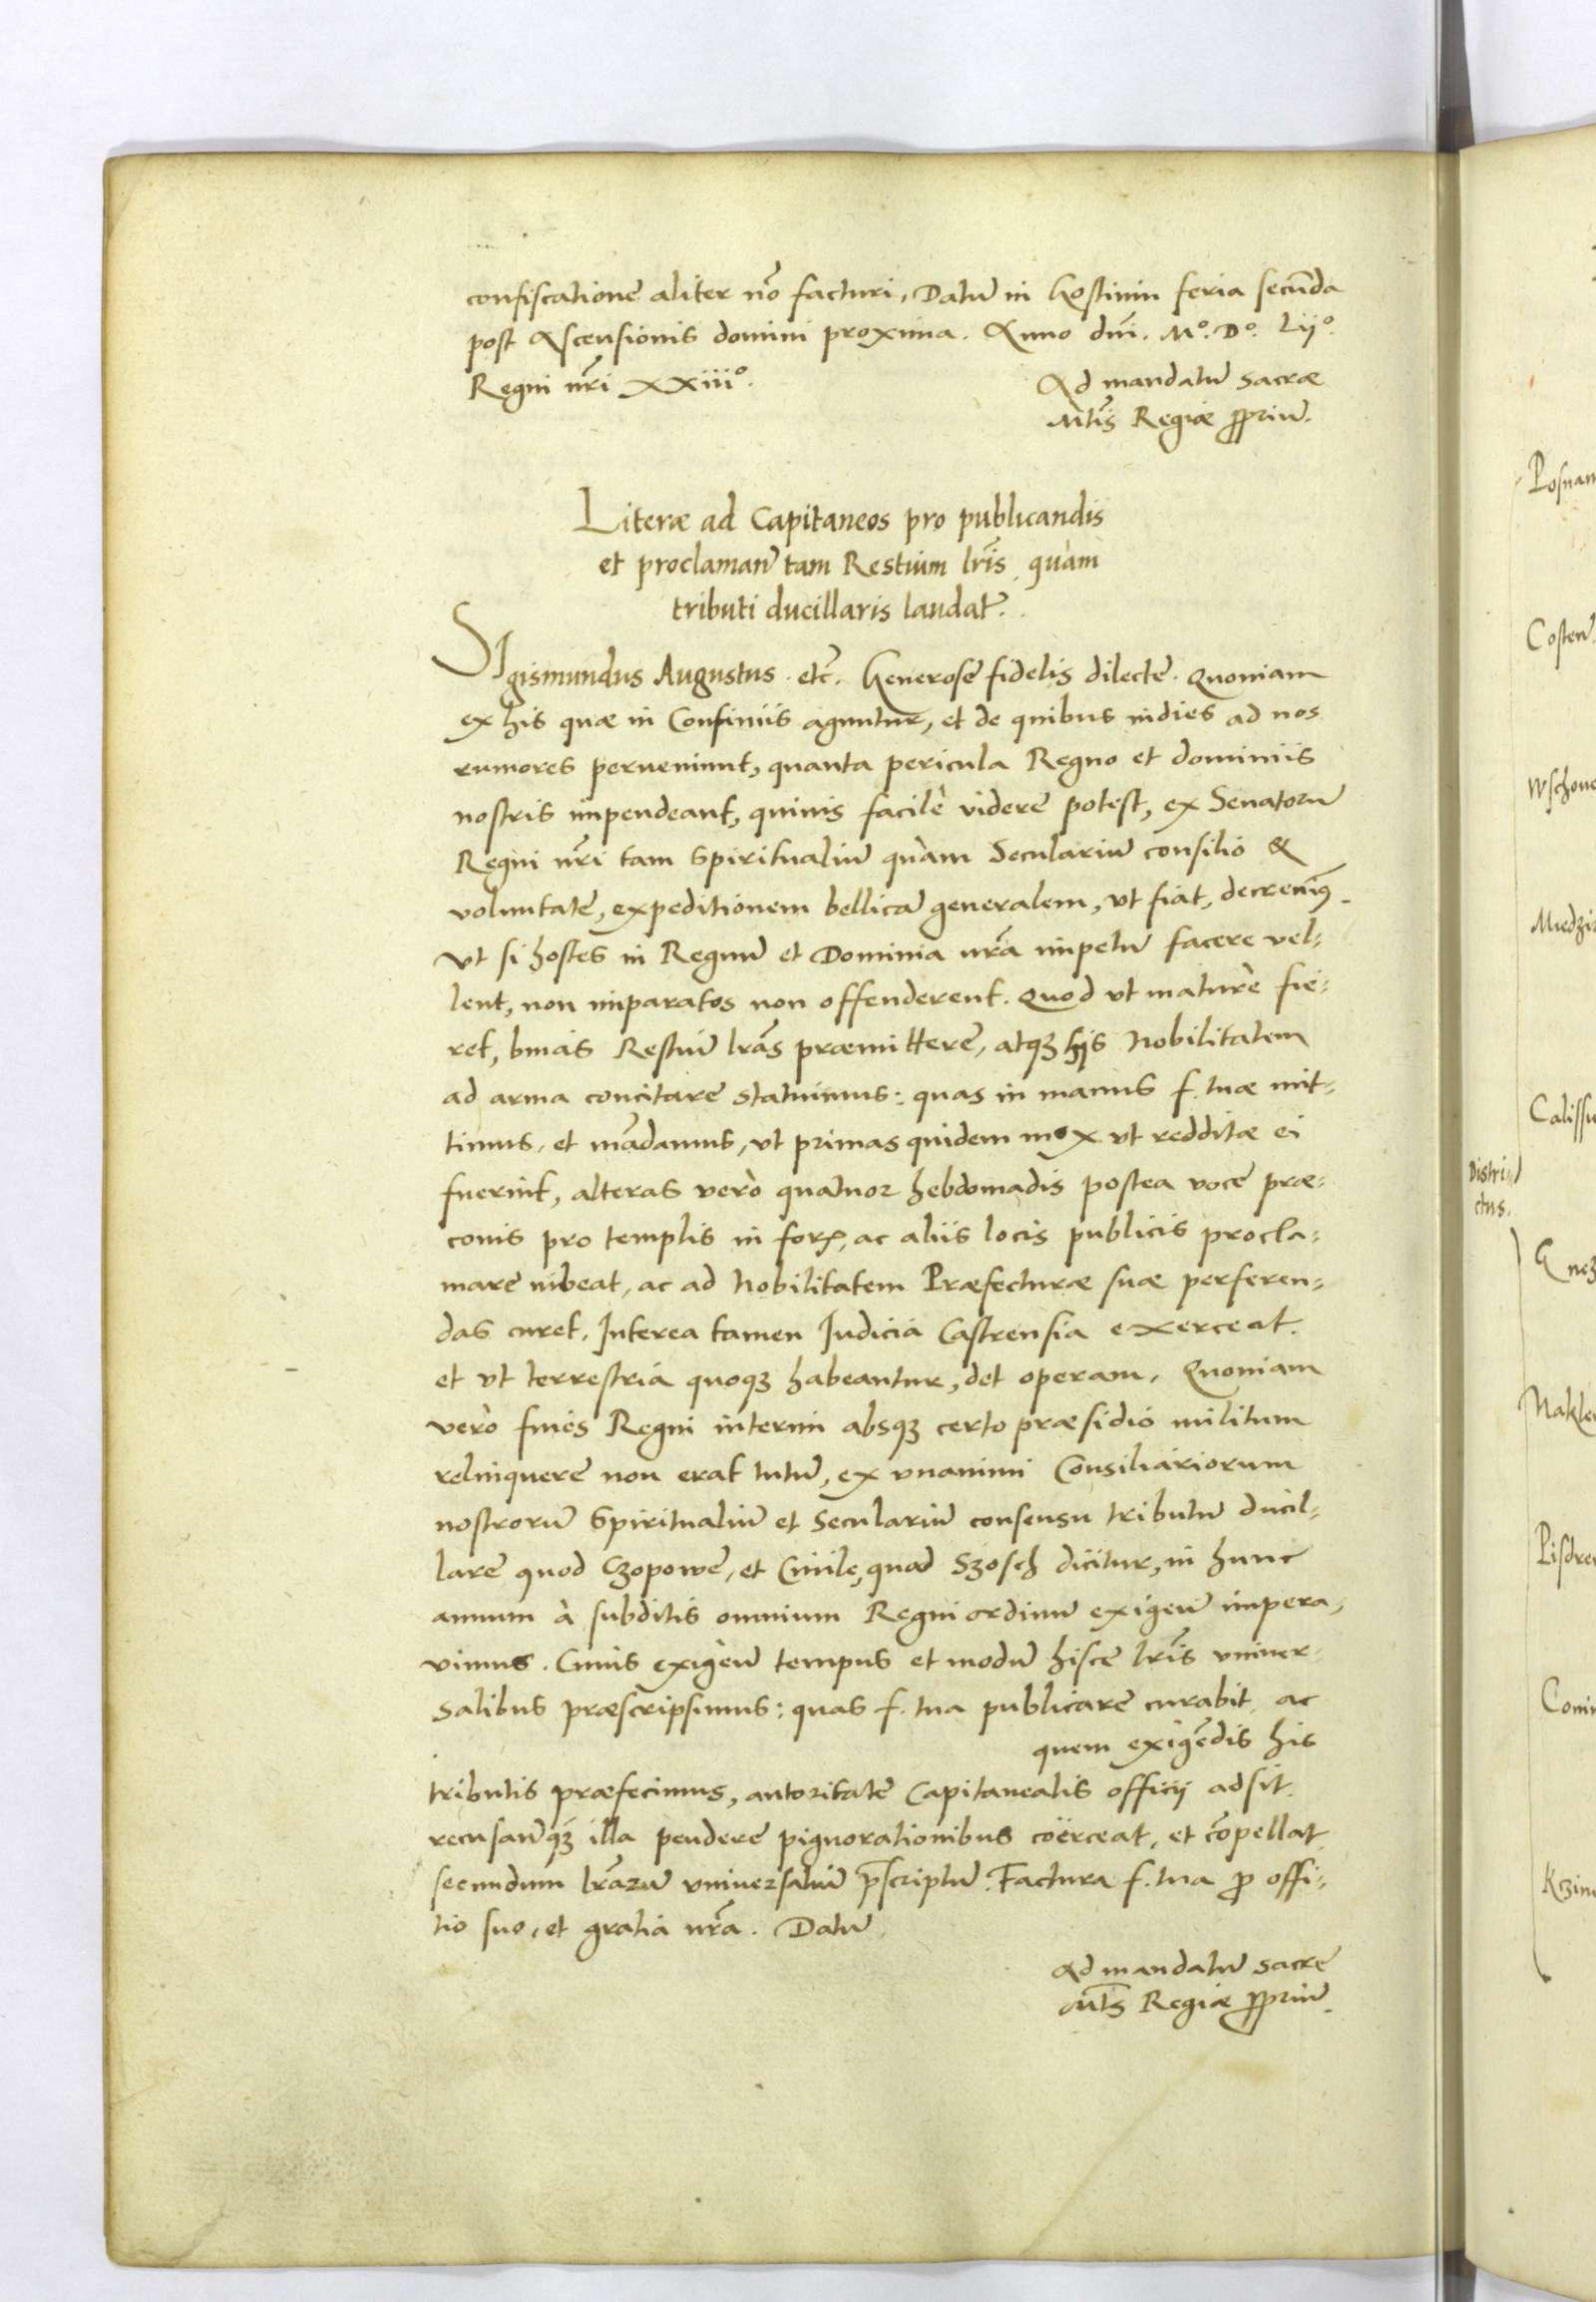 confiscatione aliter nõ facturi. Datũ in Gostinin feria secũda
post Ascensionis domini proxima. Anno dñi. Mº. Dº. Liiº.
Regni nr̃i xxiiiº.
Ad mandatũ sacræ
Mt̃is Regiæ ꝓpriũ.
Literæ ad Capitaneos pro publicandis
et proclamañ tam Restium lr̃is quam
tributi ducillaris laudat̃.
SIgismundus Augustus. etc̃. Generose fidelis dilecte. Quoniam
ex his quæ in Confiniis aguntur, et de quibus indies ad nos
rumores perueniunt, quanta pericula Regno et dominiis
nostris impendeant, quiuis facilè videre potest, ex Senatorũ
Regni nr̃i tam Spiritualiũ quàm Seculariũ consilio &
voluntate, expeditionem bellicã generalem, vt fiat, decreuimꝰ.
Vt si hostes in Regnũ et Dominia nr̃a impetũ facere vel-
lent, non imparatos non offenderent. Quod vt mature fie-
ret, binas Restiũ lr̃as præmittere, atqꝫ hijs Nobilitatem
ad arma concitare statuimus: quas in manus f. tuæ mit-
timus, et mãdamus, vt primas quidem mox vt redditæ ei
fuerint, alteras verò quatuor hebdomadis postea voce præ-
conis pro templis in forꝭ, ac aliis locis publicis procla-
mare iubeat, ac ad Nobilitatem Præfecturæ suæ perferen-
das curet. Interea tamen Iudicia Castrensia exerceat.
et vt terrestria quoqꝫ habeantur, det operam. Quoniam
verò fines Regni interim absqꝫ certo præsidio militum
relinquere non erat tutũ, ex vnanimi Consiliariorum
nostrorũ Spiritualiũ et Seculariũ consensu tributũ ducil-
lare quod Czopowe, et Ciuile, quod Szosch dicitur, in hunc
annum à subditis omnium Regni ordinũ exigeñ impera-
uimus. Cuius exigeñ tempus et modũ hisce lr̃is vniuer-
salibus præscripsimus: quas f. tua publicare curabit, ac
quem exigẽdis his
tributis præfecimus, autoritate Capitanealis officij adsit.
recusañqꝫ illa pendere pignorationibus coërceat, et cõpellat
secundum lr̃arũ vniuersaliũ p̃scriptũ. Factura f. tua ꝓ offi-
tio suo, et gratia nr̃a. Datũ
Ad mandatũ sacre
Mt̃is Regiæ ꝓpriũ.
Costeñ
Distri-
ctus.